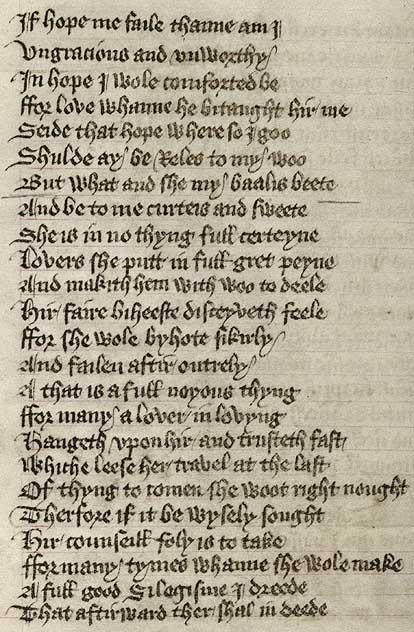 If hope me faile thanne am I
Vngracious and vnworthy
In hope I wole comforted be
ffor love whanne he bitaught hir me
Seide that hope where so I goo
Shulde ay be Reles to my woo
But what and she my baalis beete
And be to me curteis and sweete
She is in no thyng full certeyne
Lovers she putt in full gret peyne
And makith hem with woo to deele
Hir faire biheeste disceyveth feele
ffor she wole byhote sikirly
And failen aftir outrely
A that is a full noyous thyng
ffor many a lover in lovyng
Hangeth vpon hir and trusteth fast
Whiche leese her travel at the last
Of thyng to comen she woot right nought
Therfore if it be wysely sought
Hir counseill foly is to take
ffor many tymes whanne she wole make
A full good Silogisme I dreede
That aftirward ther shal in deede